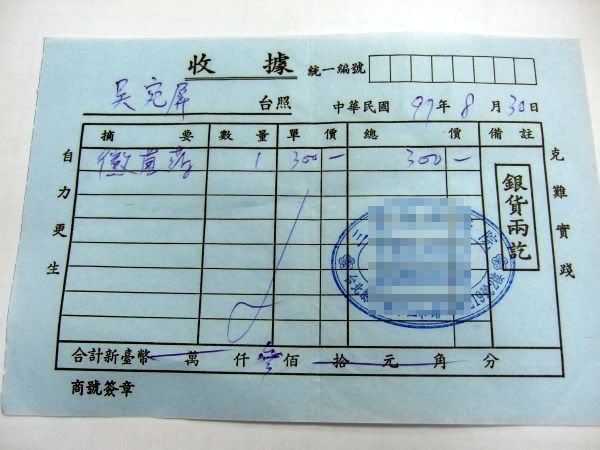 收 據 統一編號
吳宛屏 台照 中華民國 97年 8月 30日
摘 要 數 量 單 價 總 價 備 註
1 300— 300—
銀貨兩訖
自力更生
克難實踐
合計新臺幣 萬 仟 叁佰 拾 元 角 分
商號簽章